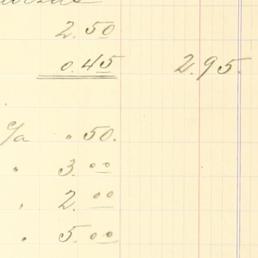 2.50
0.45 2.95.
c/a " .50.
" 3.00
" 2.00
" 5.00